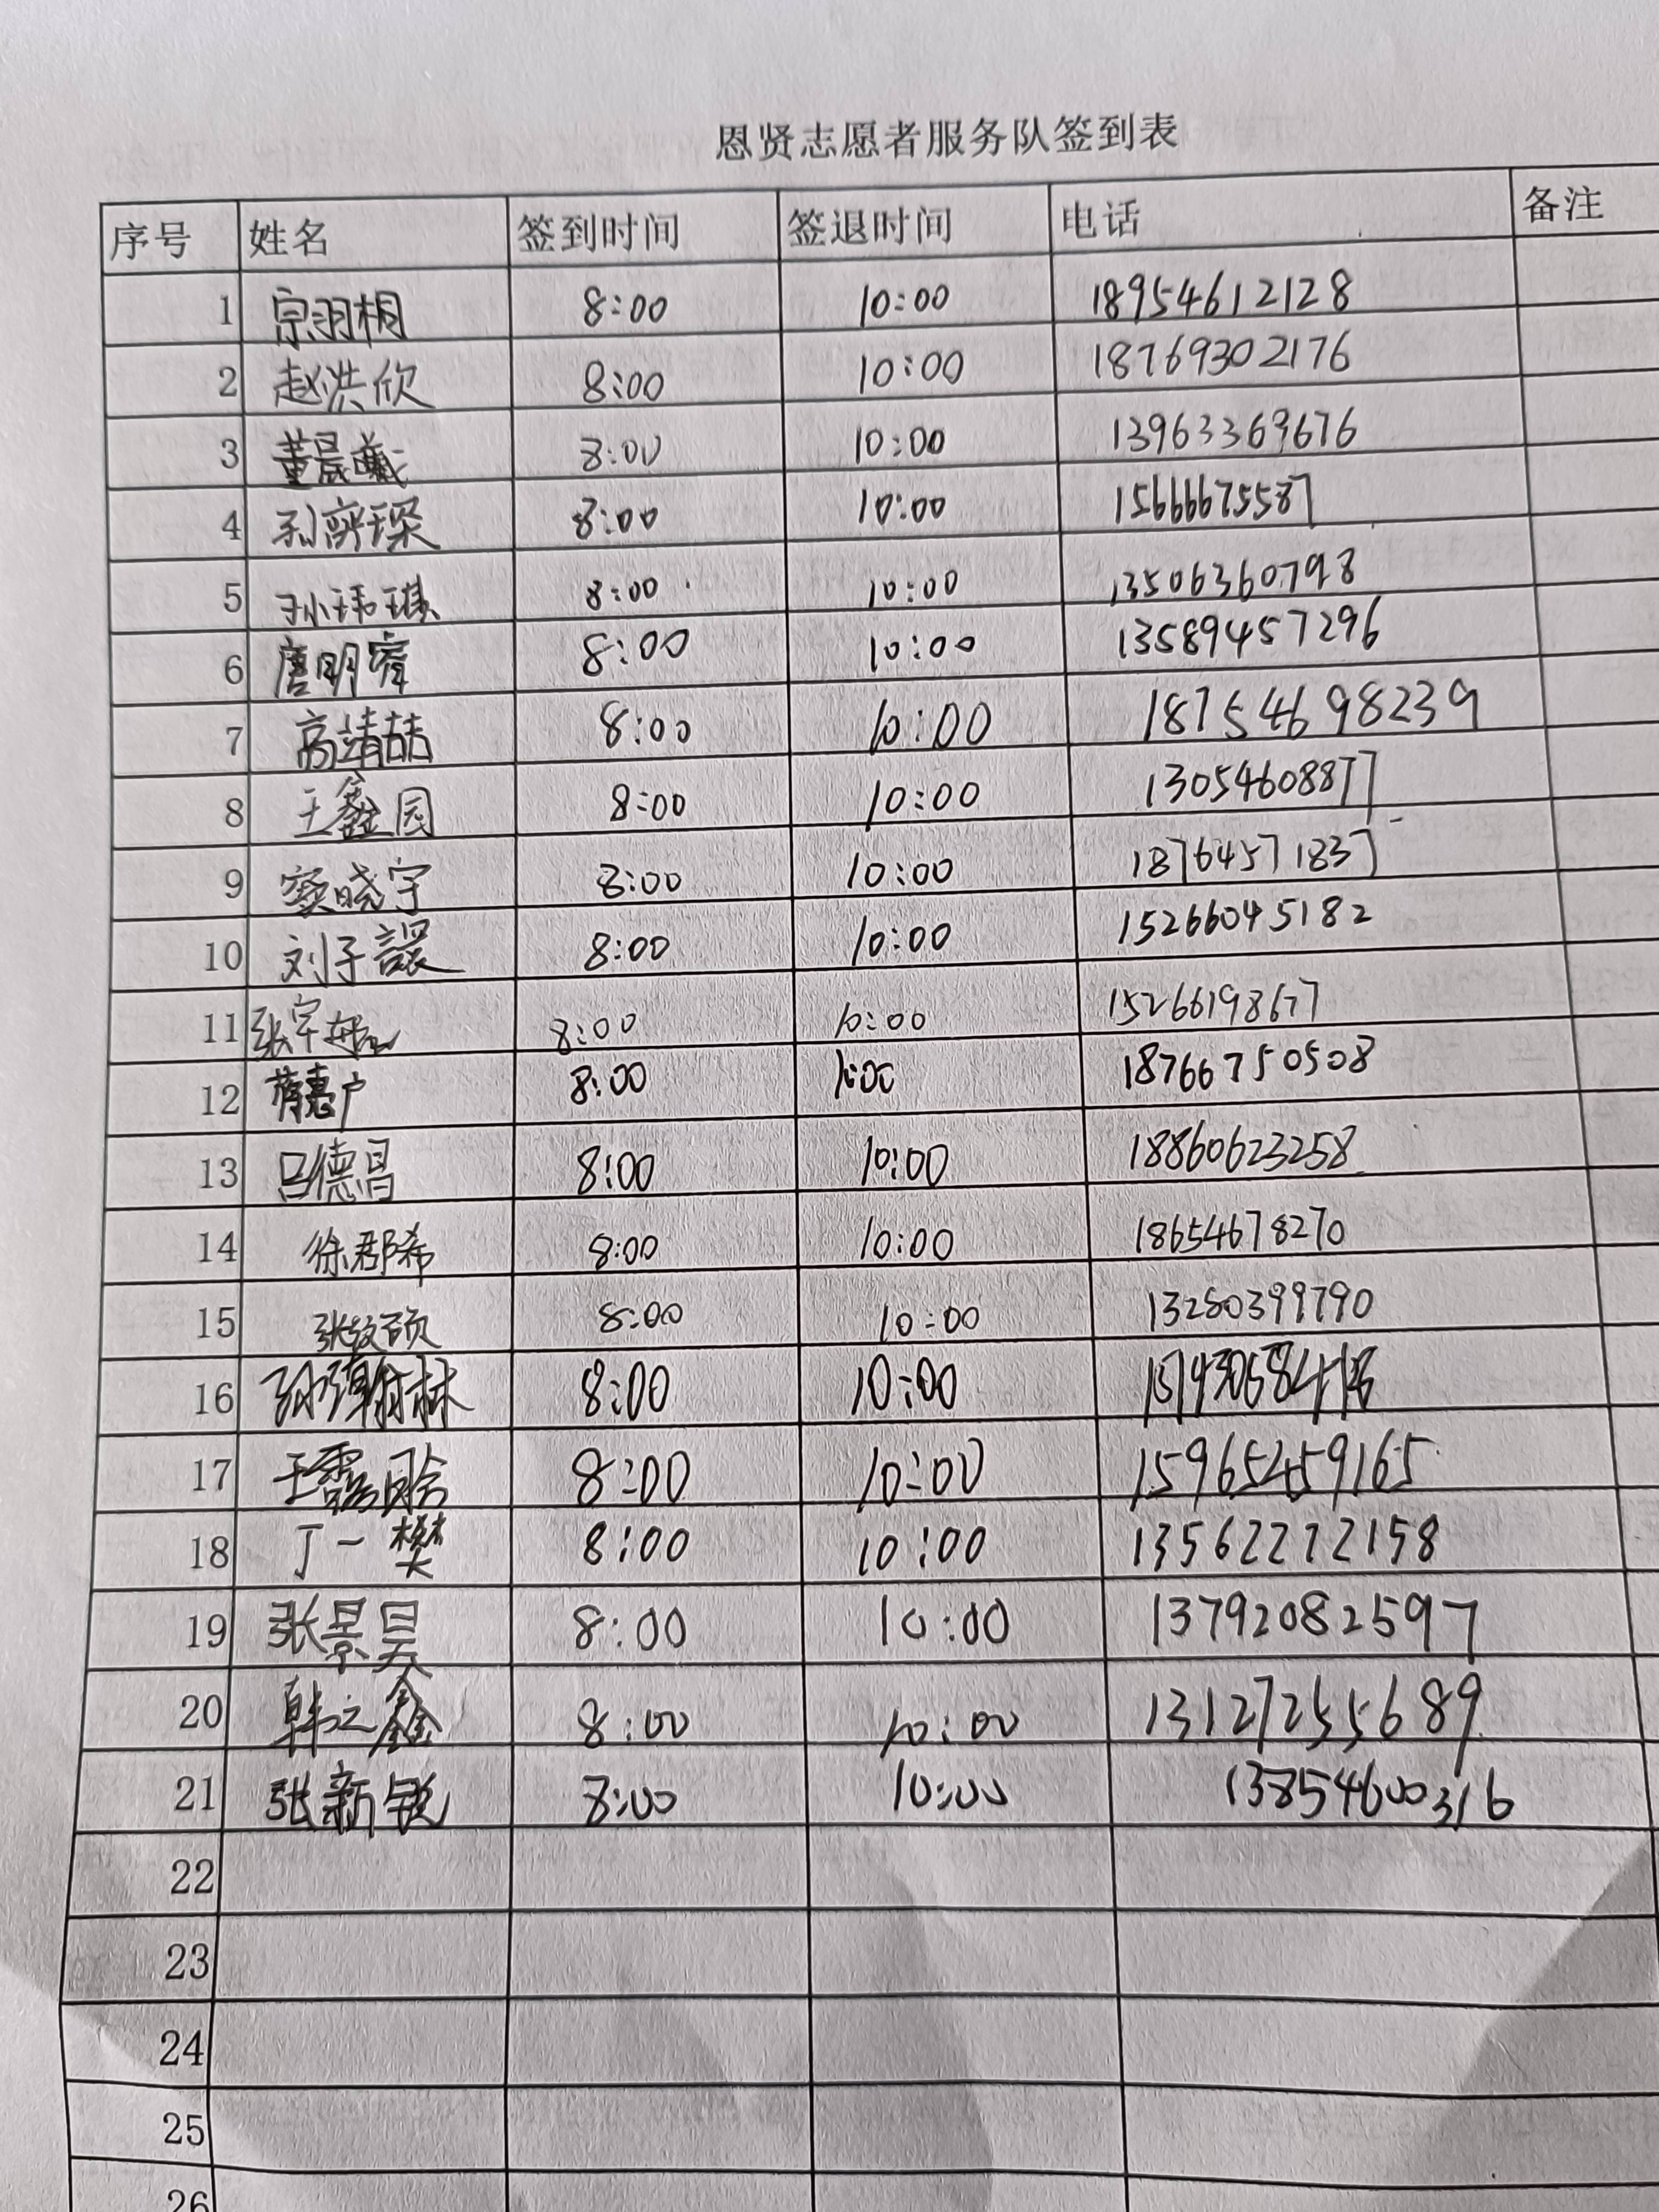 恩贤志愿者服务队签到表
序号 姓名 签到时间 签退时间 电话 备注
1 宗羽桐 8:00 10:00 18954612128
2 赵洪欣 8:00 10:00 18769302176
3 董晨曦 8:00 10:00 13963369676
4 孙奕琛 8:00 10:00 15666675587
5 孙玮琪 8:00 10:00 13506360798
6 唐明睿 8:00 10:00 13589457296
7 高靖喆 8:00 10:00 18754698239
8 王鑫园 8:00 10:00 13054608877
9 窦晓宇 8:00 10:00 18764571837
10 刘子譞 8:00 10:00 15266045182
11 张宇 8:00 10:00 15266198677
12 蒋惠户 8:00 10:00 18766750508
13 吕德昌 8:00 10:00 18860623258
14 徐郡希 8:00 10:00 18654678270
15 张纹硕 8:00 10:00 13280399790
16 8:00 10:00
17 王露晗 8:00 10:00 15965459165
18 丁一樊 8:00 10:00 13562272158
19 张景昊 8:00 10:00 13792082597
20 韩之鑫 8:00 10:00 13127255689
21 张新锐 8:00 10:00 13854600316
22
23
24
25
26